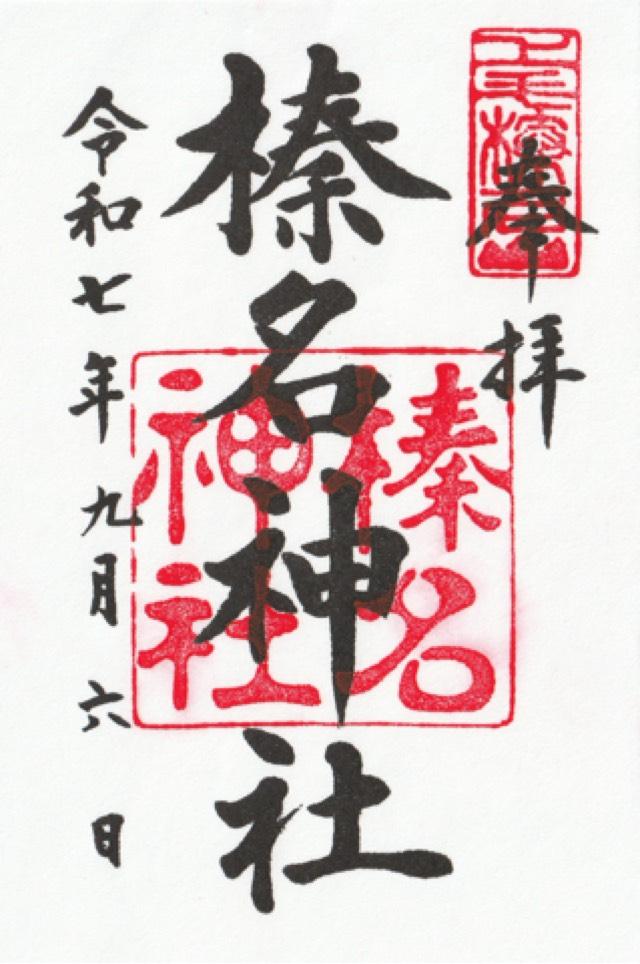 奉拝
榛名神社
榛名
神社
令和七年九月六日